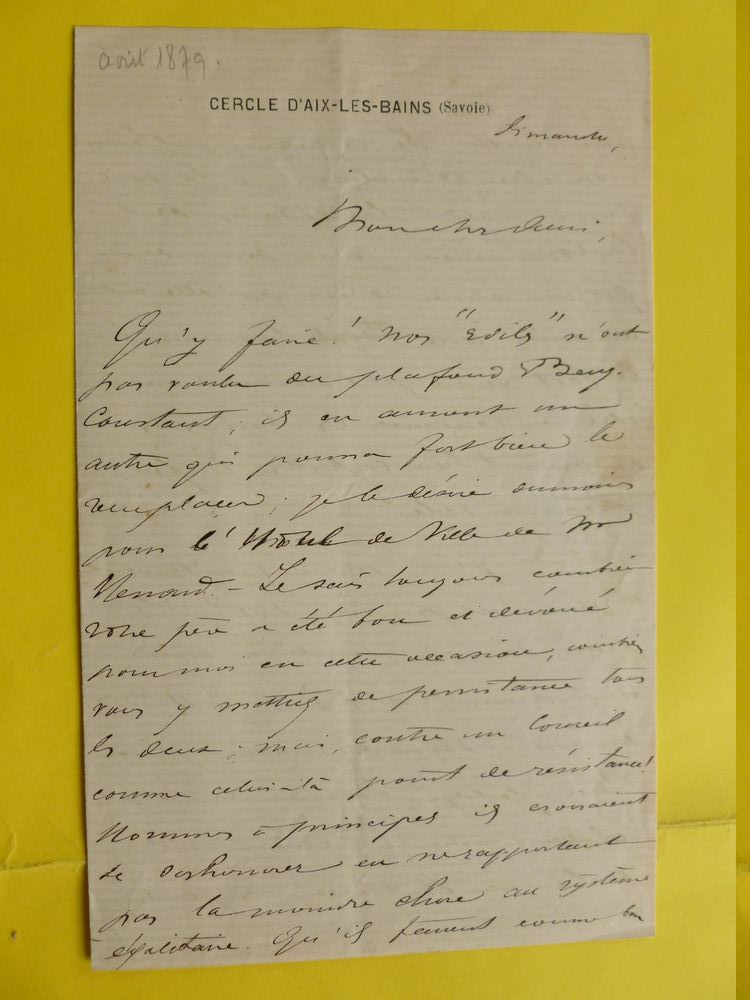 avril 1879.
CERCLE D'AIX-LES-BAINS (Savoie)
Dimanche,
Mon cher ami,
Qu'y faire! nos "Ediles" n'ont
pas voulu du plafond Benj.
Constant; ils en auront un
autre qui pourra fort bien le
remplacer; je le désire au moins
pour l'Hôtel de Ville de Mr
Renard. - Je sais toujours combien
votre père a été bon et dévoué
pour moi en cette occasion, combien
vous y mettiez de persistance tous
les deux; mais, contre un Conseil
comme celui-là point de résistance!
Hommes à principes ils croiraient
se déshonorer en ne rapportant
pas la moindre chose au système
égalitaire. Qu'ils fassent comme bon